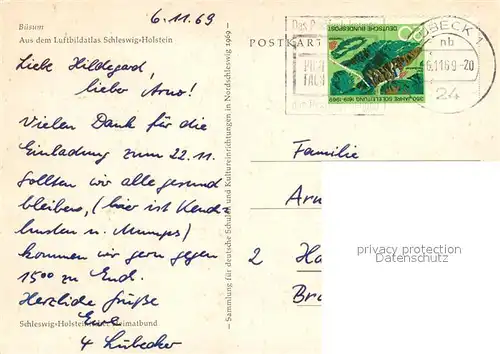 6.11.69
Büsum
Aus dem Luftbildatlas Schleswig-Holstein
Liebe Hildegard,
lieber Arno!
Vielen Dank für die
Einladung zum 22.11.
Sollten wir alle gesund
bleiben, (hier ist Keuch-
husten u. Mumps)
kommen wir gern gegen
15⁰⁰ zu Euch.
Herzliche Grüße
Eure
4 Lübecker
Schleswig-Holsteinischer Heimatbund
– Sammlung für deutsche Schulen und Kultureinrichtungen in Nordschleswig 1969 –
POSTKART
LÜBECK 1
nb
-6.11.69-20
24
DEUTSCHE BUNDESPOST
350 JAHRE SOLELEITUNG 1619-1969
Familie
Ar
2 Ha
Br
privacy protection
Datenschutz